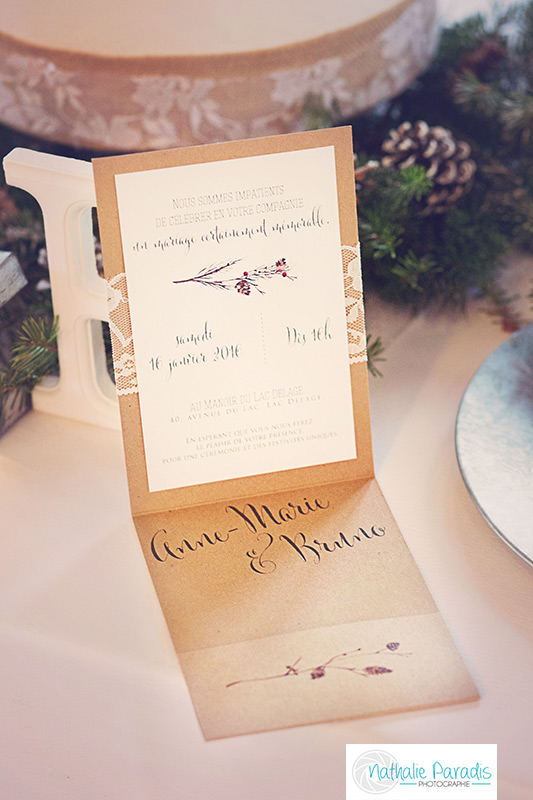 NOUS SOMMES IMPATIENTS
DE CÉLÉBRER EN VOTRE COMPAGNIE
un mariage certainement mémorable.
samedi
16 janvier 2016
Dès 16h
AU MANOIR DU LAC DELAGE
40, AVENUE DU LAC, LAC DELAGE
EN ESPÉRANT QUE VOUS NOUS FEREZ
LE PLAISIR DE VOTRE PRÉSENCE,
POUR UNE CÉRÉMONIE ET DES FESTIVITÉS UNIQUES.
Anne-Marie
& Bruno
Nathalie Paradis
PHOTOGRAPHE